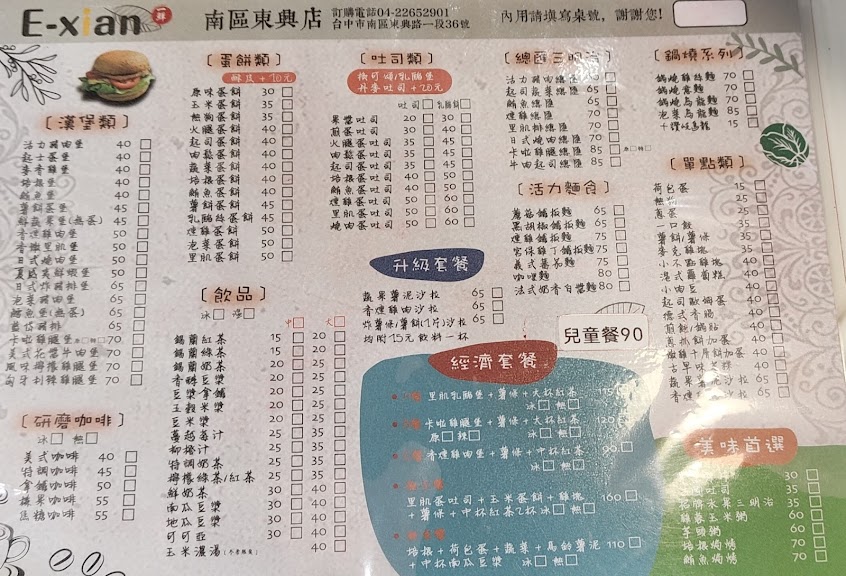 E-xian
南區東興店
訂購電話04-22652901
台中市南區東興路一段36號
內用請填寫桌號，謝謝您!
〔漢堡類〕
活力豬肉堡 40
起士蛋堡 40
麥香雞堡 40
培根堡 40
鮪魚堡 40
薯餅蛋堡 45
鮮蔬果堡(無蛋) 45
香煙雞肉堡 50
香嫩里肌堡 50
日式燒肉堡 50
日式炸豬排堡 65
泡菜豬肉堡 65
鱈魚堡(無蛋) 65
卡啦雞腿堡 70
美式花蛋牛肉堡 70
風味檸檬雞腿堡 70
匈牙利辣雞腿堡 70
〔研磨咖啡〕
冰 熱
美式咖啡 40
特調咖啡 45
拿鐵咖啡 50
榛果咖啡 55
焦糖咖啡 55
〔蛋餅類〕
酥皮+10元
原味蛋餅 30
玉米蛋餅 35
熱狗蛋餅 35
火腿蛋餅 40
起司蛋餅 40
肉鬆蛋餅 40
蔬菜蛋餅 40
培根蛋餅 40
鮪魚蛋餅 40
薯餅蛋餅 45
乳酪絲蛋餅 45
煙雞蛋餅 50
泡菜蛋餅 50
里肌蛋餅 50
〔飲品〕
冰 溫
中 大
錫蘭紅茶 15 20
錫蘭綠茶 15 20
香醇豆漿 20 25
豆漿拿鋪 20 25
五穀米漿 20 25
豆米漿 20 25
蔓越莓汁 20 25
柳橙汁 20 25
特調奶茶 20 25
檸檬綠茶/紅茶 25 35
鮮奶茶 30 40
南瓜豆漿 30 40
地瓜豆漿 30 40
可可亞 30 40
玉米濃湯 40
〔吐司類〕
換可頌/乳酪堡
丹麥吐司+20元
吐司 乳酪餅
果醬吐司 20 30
煎蛋吐司 30 40
火腿蛋吐司 35 45
肉鬆蛋吐司 35 45
起司蛋吐司 35 45
蔬菜蛋吐司 35 45
培根蛋吐司 40 50
鮪魚蛋吐司 40 50
煙雞蛋吐司 50 60
里肌蛋吐司 50 60
燒肉蛋吐司 50 60
升級套餐
蔬果薯泥沙拉 65
香煙雞肉沙拉 65
炸薯條/薯餅(1片)沙拉 65
均附15元飲料一杯
經濟套餐
里肌乳酪堡+薯條+大杯紅茶 115
冰 熱
卡啦雞腿堡+薯條+大杯紅茶 120
原 辣 冰 熱
香煙雞肉堡+薯條+中杯紅茶 90
冰 熱
里肌蛋吐司+玉米蛋餅+雞塊 160
+薯條+中杯紅茶2杯 冰 熱
培根+荷包蛋+蔬菜+馬鈴薯泥 110
+中杯南瓜豆漿 冰 熱
兒童餐90
活力豬肉總匯 65
起司蔬菜總匯 65
鮪魚總匯 65
煙雞總匯 70
里肌排總匯 70
日式燒肉總匯 70
卡啦雞腿總匯 85
牛肉起司總匯 85
〔活力麵食〕
蘑菇鋪板麵 65
黑胡椒鋪板麵 65
煙雞鋪板麵 75
宮保雞丁鋪板麵 75
義式蕃茄麵 75
咖哩麵 80
法式奶香白醬麵 80
〔鍋燒系列〕
鍋燒雞絲麵 70
鍋燒意麵 70
鍋燒烏龍麵 70
泡菜烏龍麵 85
15
〔單點類〕
荷包蛋 15
熱狗
蔥蛋 25
一口餃
薯餅/薯條 35
麥克雞塊 35
小不點雞塊 35
港式蘿蔔糕 35
小肉豆 35
起司歐姆蛋
德式香腸
煎餃/鍋貼
蔬果薯泥沙拉 65
香煙雞肉沙拉 65
美味首選
30
吐司 35
三明治 35
玉米粥 60
芋頭粥 60
培根焗烤 60
鮪魚焗烤 60